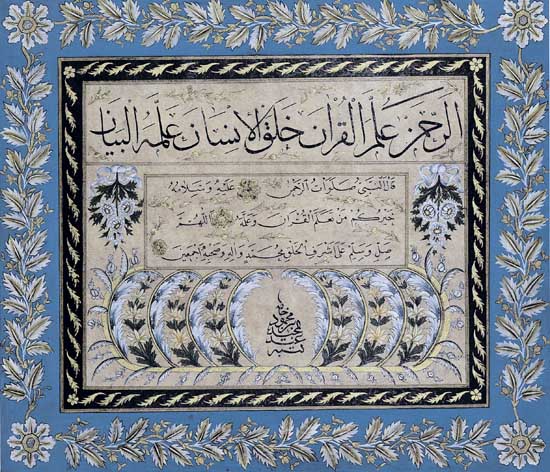 الرحمن علم القرآن خلق الانسان علمه البيان
قال النبي صلوات الرحمن عليه وسلامه
خيركم من تعلم القرآن وعلمه اللهم
صل وسلم على اشرف الخلق محمد واله وصحبه اجمعين
كتبه عبد المجيد بن محمود خان